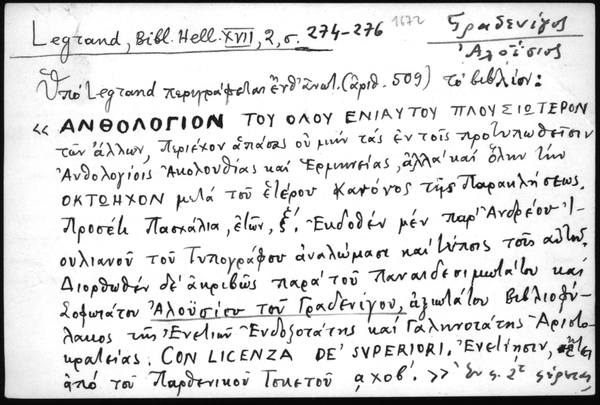 Legrand, Bibl. Hell. XVII, 2, σ. 274-276 1672 Γραδενίγος
Ἀλοΐσιος
Ὑπό Legrand περιγράφεται ἐνθ' ἀνωτ. (ἀριθ. 509) τό βιβλίον:
« ΑΝΘΟΛΟΓΙΟΝ ΤΟΥ ΟΛΟΥ ΕΝΙΑΥΤΟΥ ΠΛΟΥΣΙΩΤΕΡΟΝ
τῶν ἄλλων, Περιέχον ἁπάσας οὐ μήν τάς ἐν τοῖς προτυπωθεῖσιν
Ἀνθολογίοις Ἀκολουθίας καί Ἑρμηνείας, ἀλλά καί ὅλην τήν
ΟΚΤΩΗΧΟΝ μετά τοῦ ἑτέρου Κανόνος τῆς Παρακλήσεως.
Προσέτι Πασχάλια, ἐτῶν, ξ΄. Ἐκδοθέν μέν παρ' Ἀνδρέου Ἰ-
ουλιανοῦ τοῦ Τυπογράφου ἀναλώμασι καί τύποις τοῖς αὐτοῦ,
Διορθωθέν δέ ἀκριβῶς παρά τοῦ Παναιδεσιμωτάτου καί
Σοφωτάτου Ἀλοϋσίου τοῦ Γραδενίγου, ἀξιωτάτου Βιβλιοφύ-
λακος τῆς Ἐνετιῶν Ἐνδοξοτάτης καί Γαληνοτάτης Ἀριστο-
κρατείας. CON LICENZA DE' SVPERIORI. Ἐνετίῃσιν, ἔτει
ἀπό τοῦ Παρθενικοῦ Τοκετοῦ αχοβ΄. »